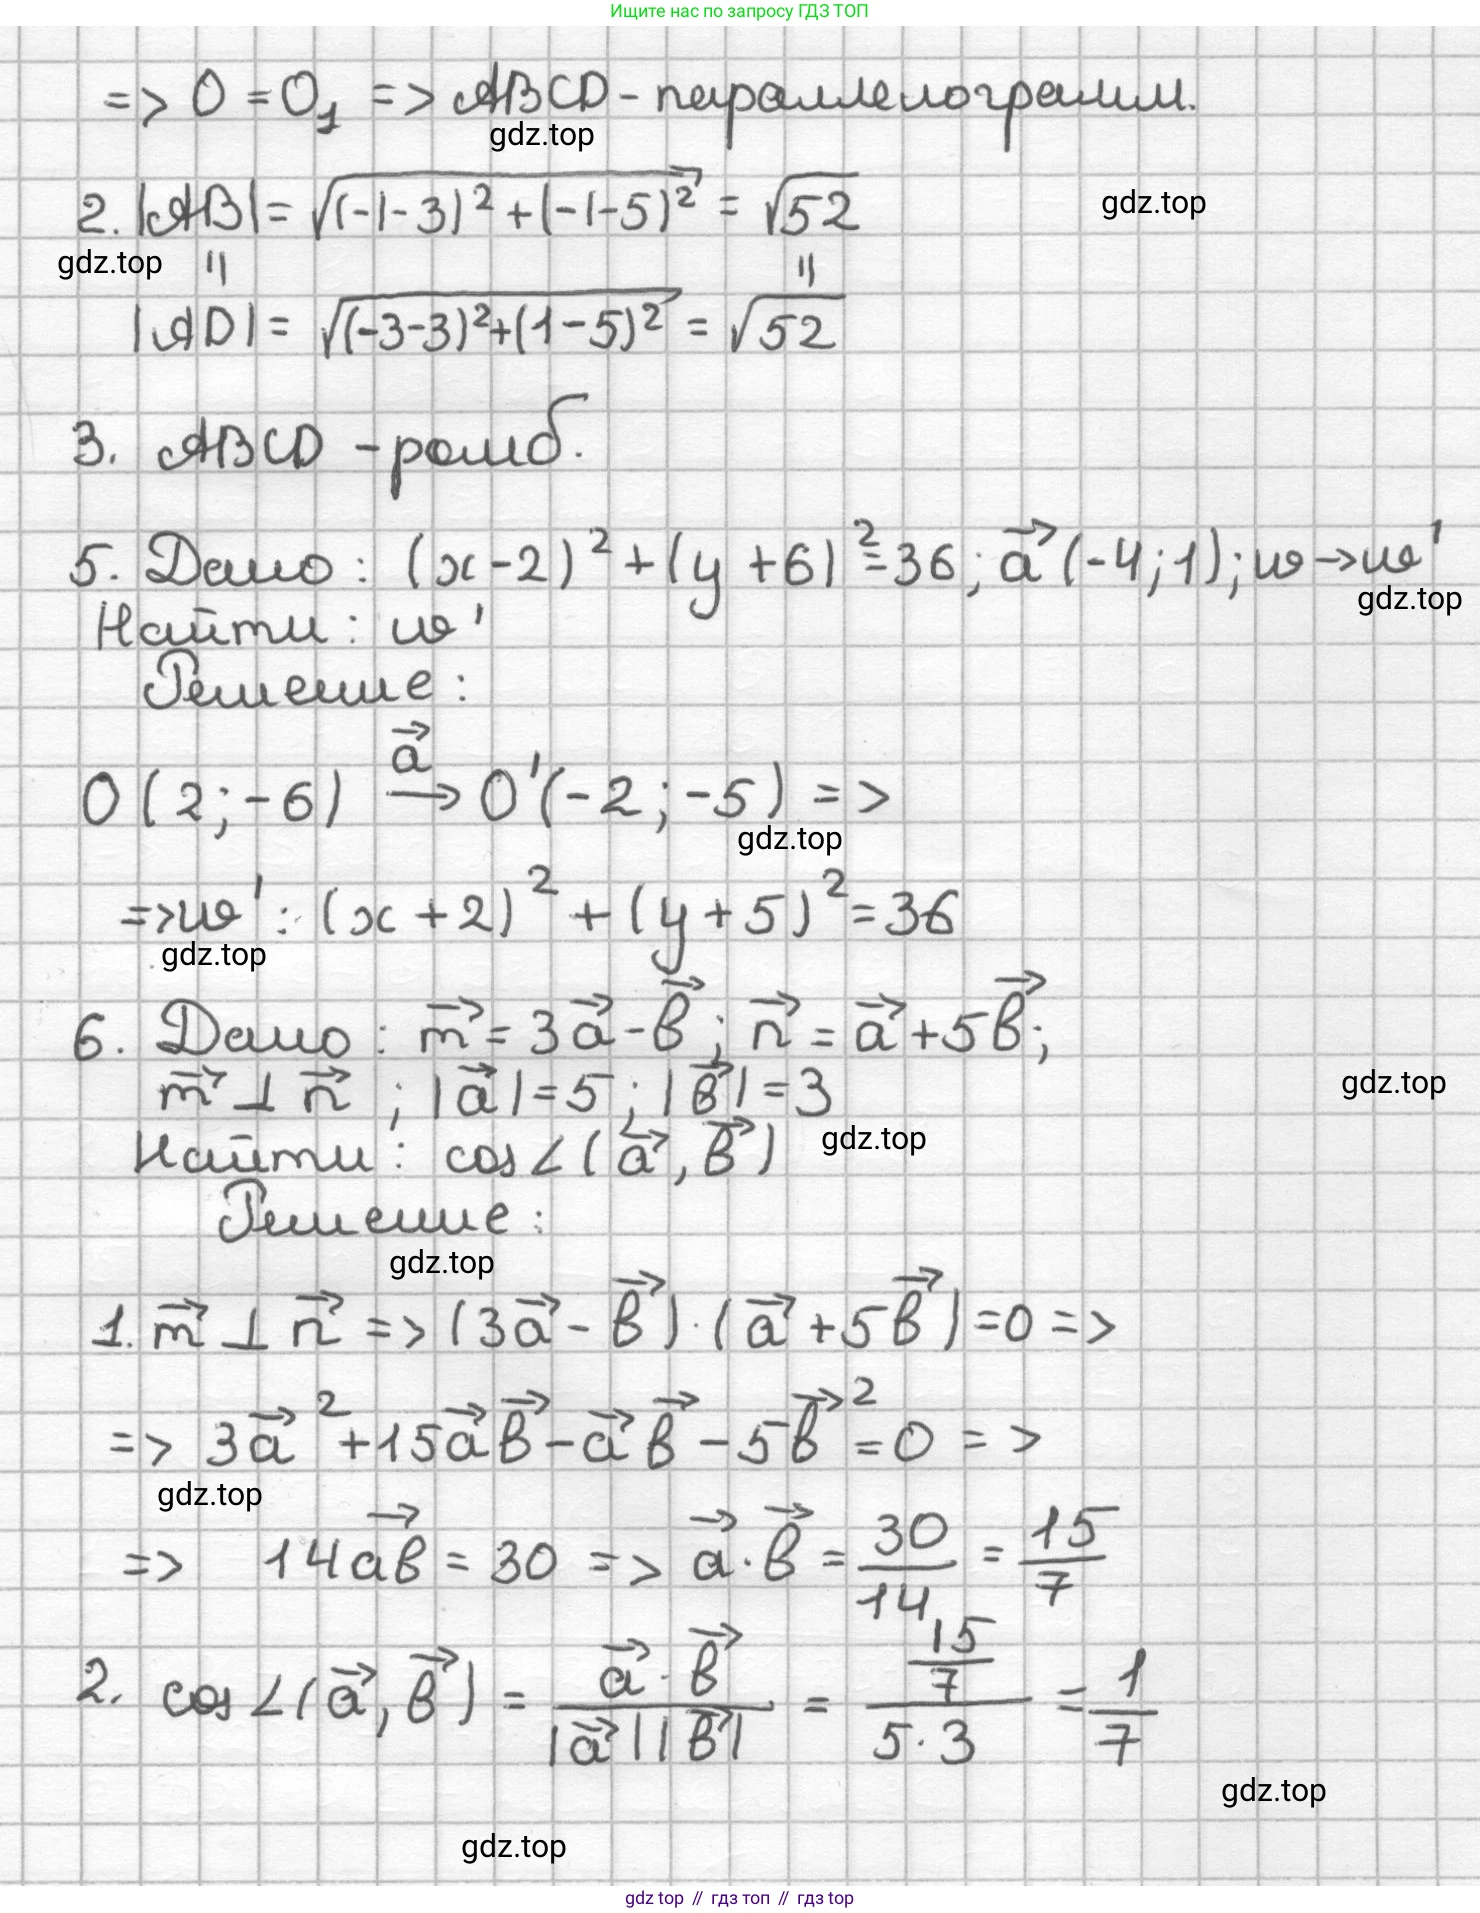 Ищите нас по запросу ГДЗ ТОП
=> O = O₁ => ABCD - параллелограмм.
gdz.top
2. |AB| = √((-1-3)² + (-1-5)²) = √52
gdz.top
gdz.top
|| ||
|AD| = √((-3-3)² + (1-5)²) = √52
3. ABCD - ромб.
5. Дано: (x-2)² + (y+6)² = 36; a⃗ (-4; 1); ω → ω'
gdz.top
Найти: ω'
Решение:
O (2; -6) →(a⃗) O' (-2; -5) =>
gdz.top
=> ω': (x+2)² + (y+5)² = 36
gdz.top
6. Дано: m⃗ = 3a⃗ - b⃗; n⃗ = a⃗ + 5b⃗;
m⃗ ⊥ n⃗; |a⃗| = 5; |b⃗| = 3
gdz.top
Найти: cos∠(a⃗, b⃗)
gdz.top
Решение:
gdz.top
1. m⃗ ⊥ n⃗ => (3a⃗ - b⃗) · (a⃗ + 5b⃗) = 0 =>
=> 3a⃗² + 15a⃗b⃗ - a⃗b⃗ - 5b⃗² = 0 =>
gdz.top
=> 14ab⃗ = 30 => a⃗ · b⃗ = 30/14 = 15/7
2. cos∠(a⃗, b⃗) = (a⃗ · b⃗)/(|a⃗||b⃗|) = (15/7)/(5·3) = 1/7
gdz.top
gdz.top
gdz top // гдз топ // гдз top